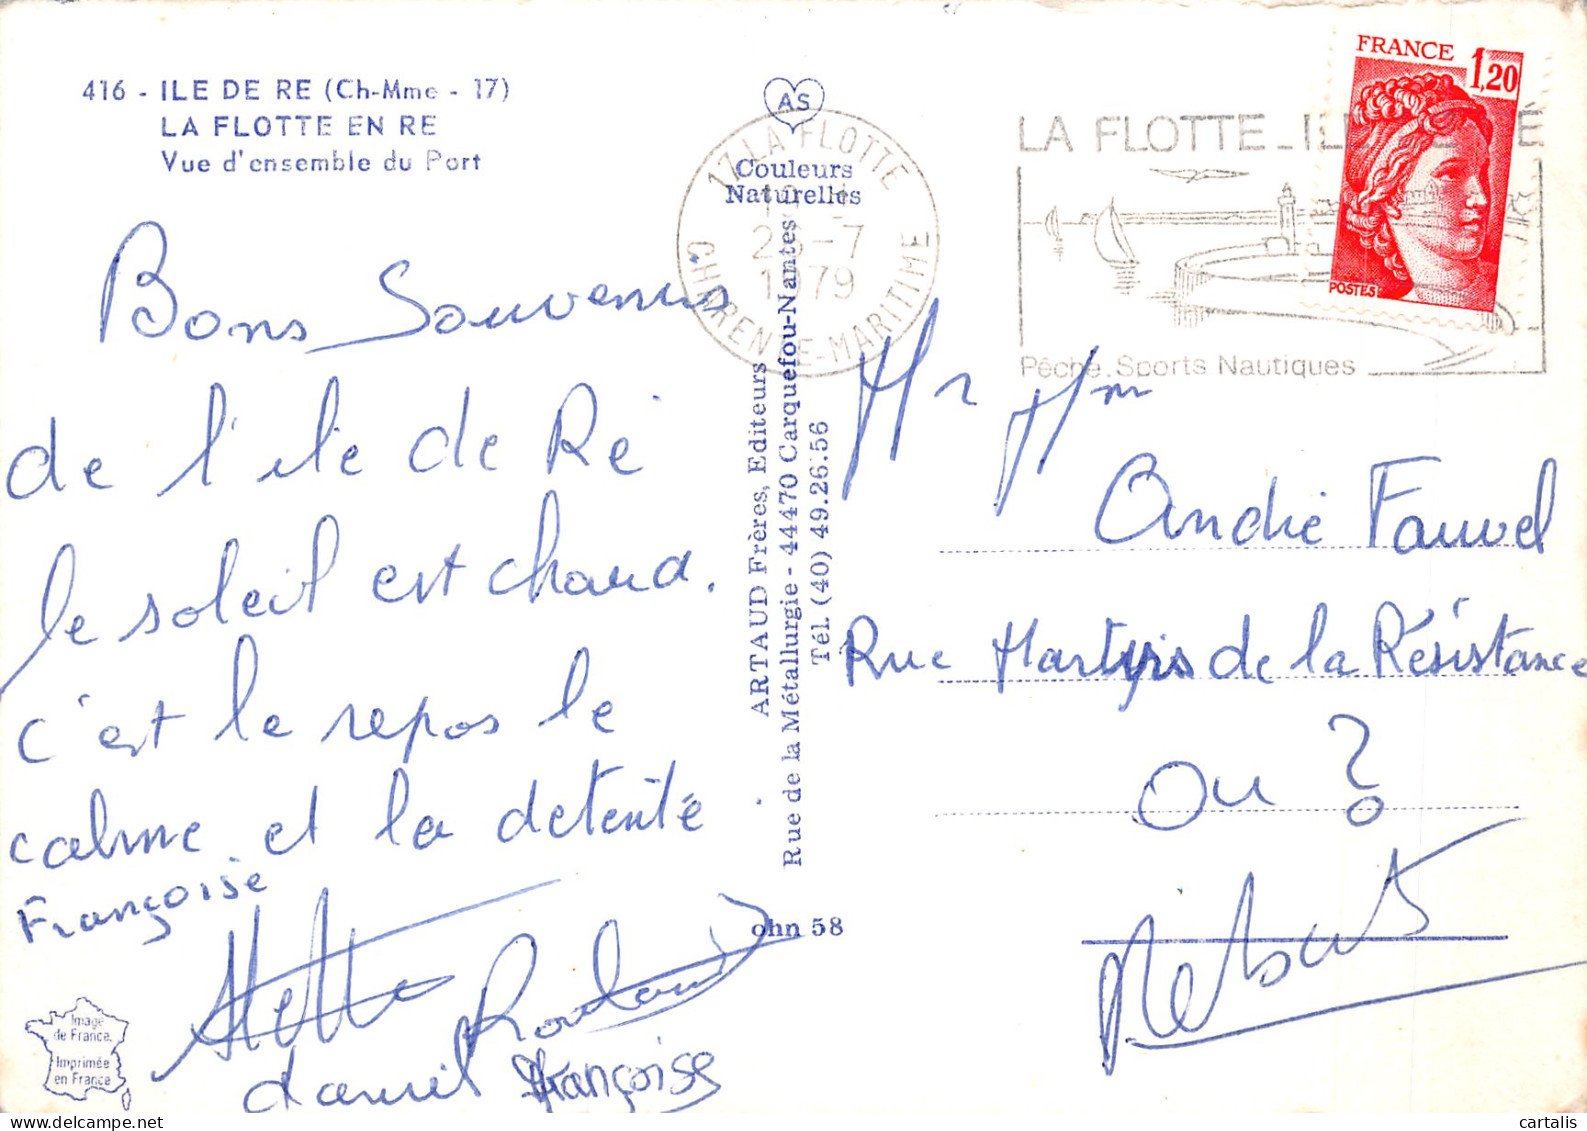 416 - ILE DE RE (Ch-Mme - 17)
LA FLOTTE EN RE
Vue d'ensemble du Port
Bons Souvenirs
de l'ile de Ré
le soleil est chaud.
c'est le repos le
calme et la detente
Françoise
Roland
daniel Françoise
Image
de France.
Imprimée
en France
AS
Couleurs
Naturelles
17 LA FLOTTE
-7
1979
CHARENTE-MARITIME
ARTAUD Frères, Editeurs
Rue de la Métallurgie - 44470 Carquefou-Nantes
Tél. (40) 49.26.56
ohn 58
LA FLOTTE_ILE RÉ
Pêche.Sports Nautiques
FRANCE
1,20
POSTES
Mr Mm
André Fauvel
Rue Martyrs de la Résistance
ou ?
cartalis